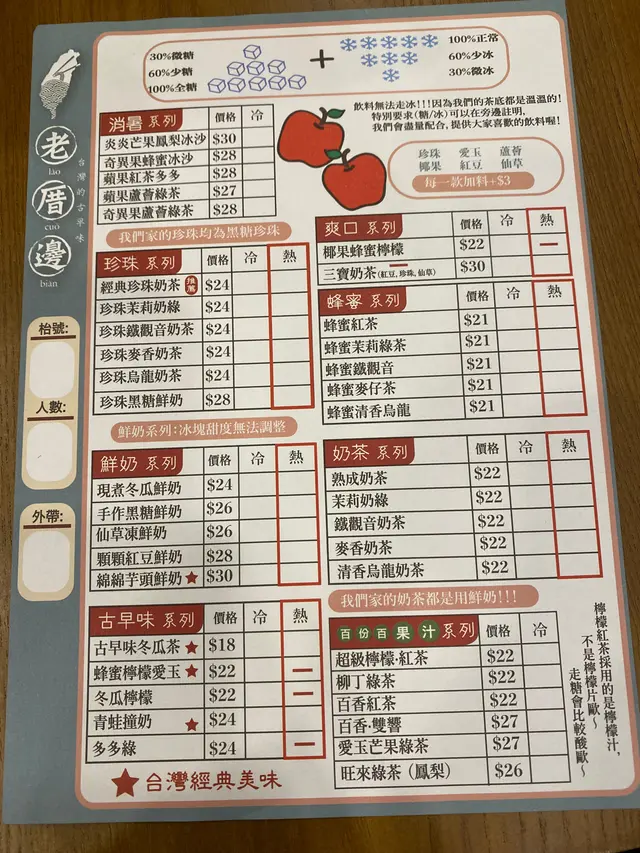 30%微糖
60%少糖
100%全糖
+
100%正常
60%少冰
30%微冰
飲料無法走冰!!!因為我們的茶底都是溫溫的!
特別要求(糖/冰)可以在旁邊註明,
我們會盡量配合,提供大家喜歡的飲料喔!
珍珠 愛玉 蘆薈
椰果 紅豆 仙草
每一款加料+$3
老
lǎo
厝
cuò
邊
biān
台灣的古早味
枱號:
人數:
外帶:
消暑 系列 價格 冷
炎炎芒果鳳梨冰沙 $30
奇異果蜂蜜冰沙 $28
蘋果紅茶多多 $28
蘋果蘆薈綠茶 $27
奇異果蘆薈綠茶 $28
我們家的珍珠均為黑糖珍珠
珍珠 系列 價格 冷 熱
經典珍珠奶茶 推薦 $24
珍珠茉莉奶綠 $24
珍珠鐵觀音奶茶 $24
珍珠麥香奶茶 $24
珍珠烏龍奶茶 $24
珍珠黑糖鮮奶 $28
鮮奶系列:冰塊甜度無法調整
鮮奶 系列 價格 冷 熱
現煮冬瓜鮮奶 $24
手作黑糖鮮奶 $26
仙草凍鮮奶 $26
顆顆紅豆鮮奶 $28
綿綿芋頭鮮奶★ $30
古早味 系列 價格 冷 熱
古早味冬瓜茶★ $18
蜂蜜檸檬愛玉★ $22 —
冬瓜檸檬 $22 —
青蛙撞奶 ★ $24
多多綠 $24 —
★台灣經典美味
爽口 系列 價格 冷 熱
椰果蜂蜜檸檬 $22 —
三寶奶茶(紅豆, 珍珠, 仙草) $30
蜂蜜 系列 價格 冷 熱
蜂蜜紅茶 $21
蜂蜜茉莉綠茶 $21
蜂蜜鐵觀音 $21
蜂蜜麥仔茶 $21
蜂蜜清香烏龍 $21
奶茶 系列 價格 冷 熱
熟成奶茶 $22
茉莉奶綠 $22
鐵觀音奶茶 $22
麥香奶茶 $22
清香烏龍奶茶 $22
我們家的奶茶都是用鮮奶!!!
百份百果汁系列 價格 冷
超級檸檬·紅茶 $22
柳丁綠茶 $22
百香紅茶 $22
百香·雙響 $27
愛玉芒果綠茶 $27
旺來綠茶(鳳梨) $26
檸檬紅茶採用的是檸檬汁,
不是檸檬片歐~
走糖會比較酸歐~